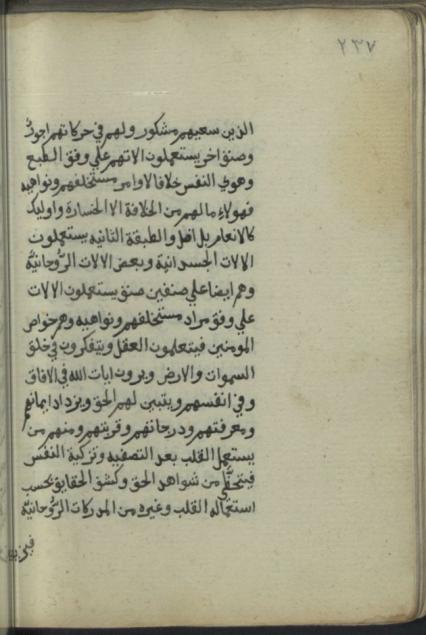 ٢٣٧
الذين سعيهم مشكور ولهم في حركاتهم اجورٌ
وصنف اخر يستعملون الاتهم علي وفق الطبع
وهوي النفس خلافا لاوامر مستخلفهم ونواهيه
فهولاء ما لهم من الخلافة الا الخسارة واوليك
كالانعام بل اضل والطبقة الثانيه يستعملون
الالات الجسدانية وبعض الالات الرُّوحانيَّة
وهم ايضا علي صنفين صنف يستعملون الالات
علي وفق مراد مستخلفهم ونواهيه وهم خواص
المومنين فيتعلمون العقل ويتفكرون في خلق
السموات والارض ويرون ايات الله في الافاق
وفي انفسهم ويتبين لهم الحق ويزداد ايمانهم
ومعرفتهم ودرجاتهم وقربتهم ومنهم من
يستعمل القلب بعد التصفيه وتزكية النفس
من شواهد الحق وكشف الحقايق بحسب
استعماله القلب وغيره من المدركات الرُّوحانيَّة